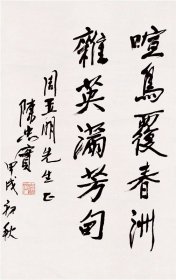 喧鳥覆春洲
雜英滿芳甸
周亚明先生正
陳忠實
甲戌初秋